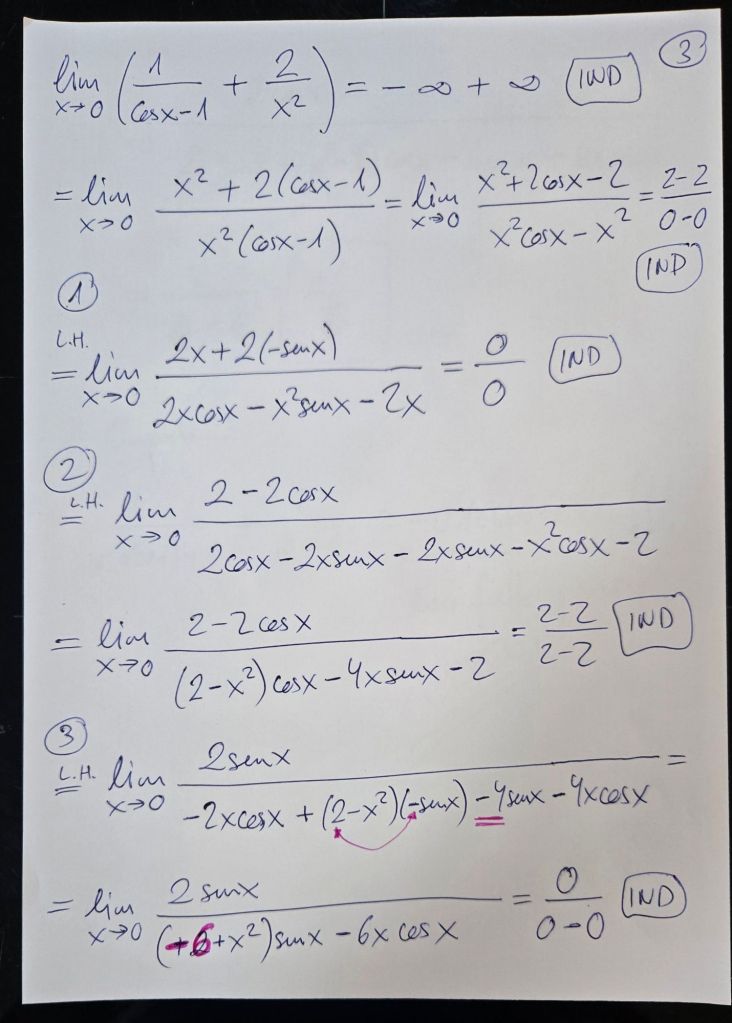 lim x→0 (1/(cosx-1) + 2/x²) = -∞ + ∞ IND ③
= lim x→0 (x² + 2(cosx-1))/(x²(cosx-1)) = lim x→0 (x²+2cosx-2)/(x²cosx-x²) = (2-2)/(0-0)
IND
①
L.H.
= lim x→0 (2x+2(-senx))/(2xcosx-x²senx-2x) = 0/0 IND
②
L.H.
= lim x→0 (2-2cosx)/(2cosx-2xsenx-2xsenx-x²cosx-2)
= lim x→0 (2-2cosx)/((2-x²)cosx-4xsenx-2) = (2-2)/(2-2) IND
③
L.H.
= lim x→0 (2senx)/(-2xcosx+(2-x²)(-senx)-4senx-4xcosx) =
= lim x→0 (2senx)/((-6+x²)senx-6xcosx) = 0/(0-0) IND